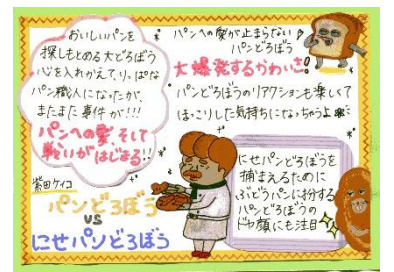 おいしいパンを
探しもとめる大どろぼう
心を入れかえて、りっぱな
パン職人になったが、
またまた事件が!!!
パンへの愛、そして
戦いがはじまる!!
柴田ケイコ
パンどろぼう
VS
にせパンどろぼう
パンへの愛が止まらない
パンどろぼう
大爆発するかわいさ!
パンどろぼうのリアクションも楽しくて
ほっこりした気持ちになっちゃうよ
にせパンどろぼうを
捕まえるために
ぶどうパンに扮する
パンどろぼうの
ドヤ顔にも注目